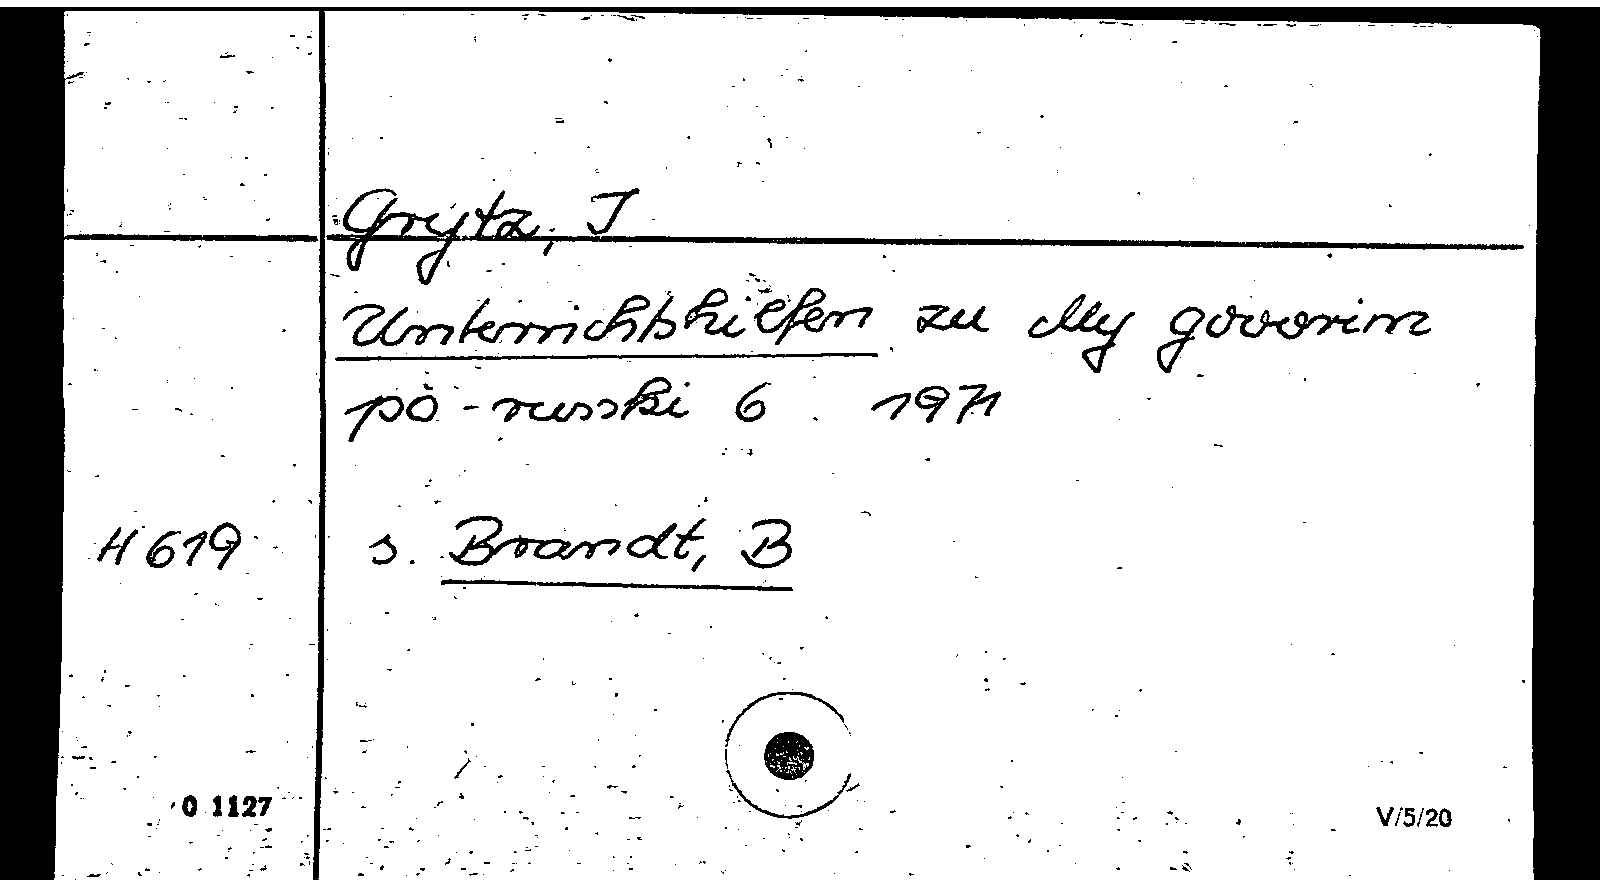 Grytz, J
Unterrichtshilfen zu My govorim
po-russki 6. 1971
H 619 s. Brandt, B
0 1127
V/5/20